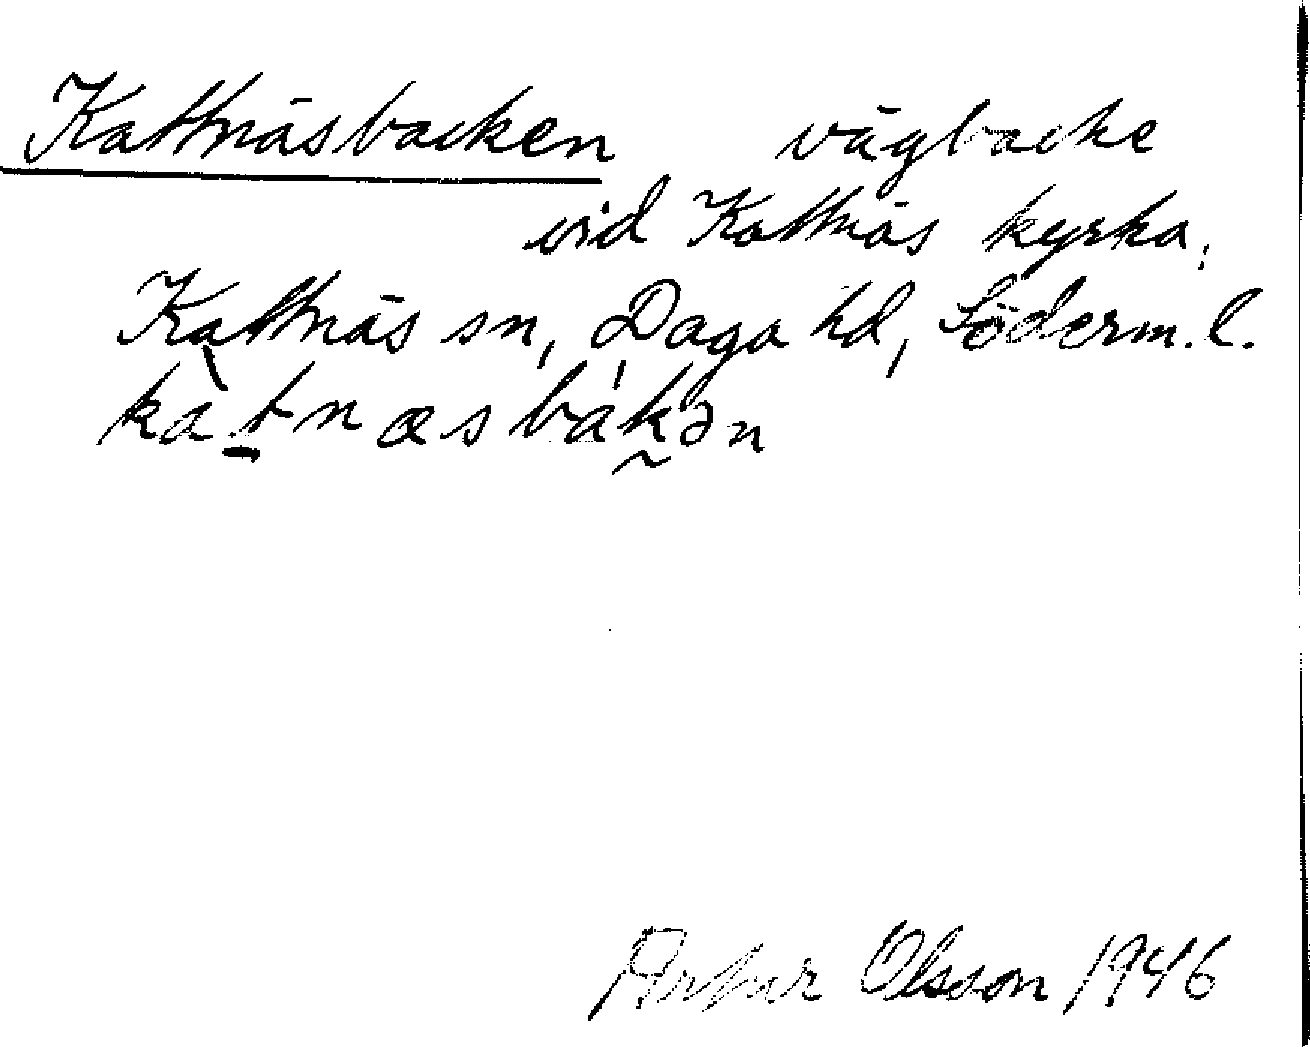 Kattnäsbacken vägbacke
vid Kattnäs kyrka,
Kattnäs sn, Daga hd, Söderm. l.
kàt̠næsbákən
Artur Olsson 1946